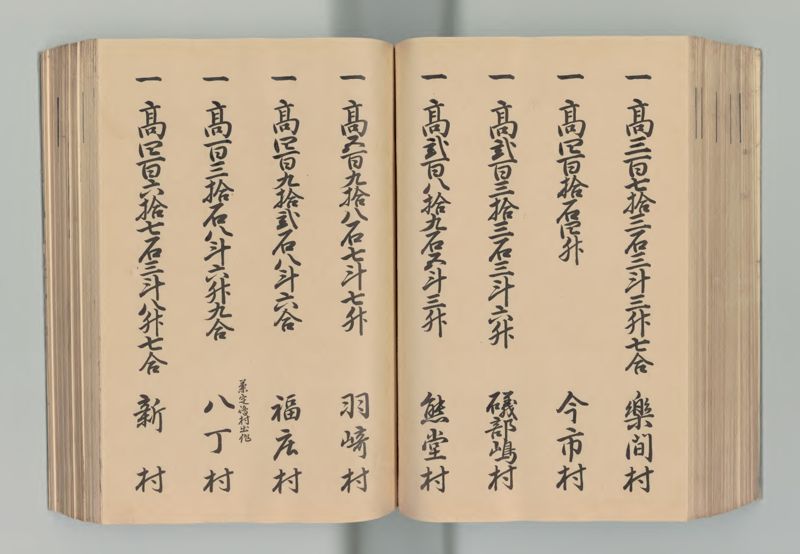 一 髙三百七拾三石三斗三升七合 樂間村
一 髙四百拾石四升 今市村
一 髙弐百三拾三石三斗六升 礒部嶋村
一 髙弐百八拾九石五斗三升 熊堂村
一 髙五百九拾八石七斗七升 羽崎村
一 髙四百九拾弐石八斗六合 福庄村
一 髙百三拾石八斗六升九合 八丁村
村出作
一 髙四百六拾七石三斗八升七合 新村